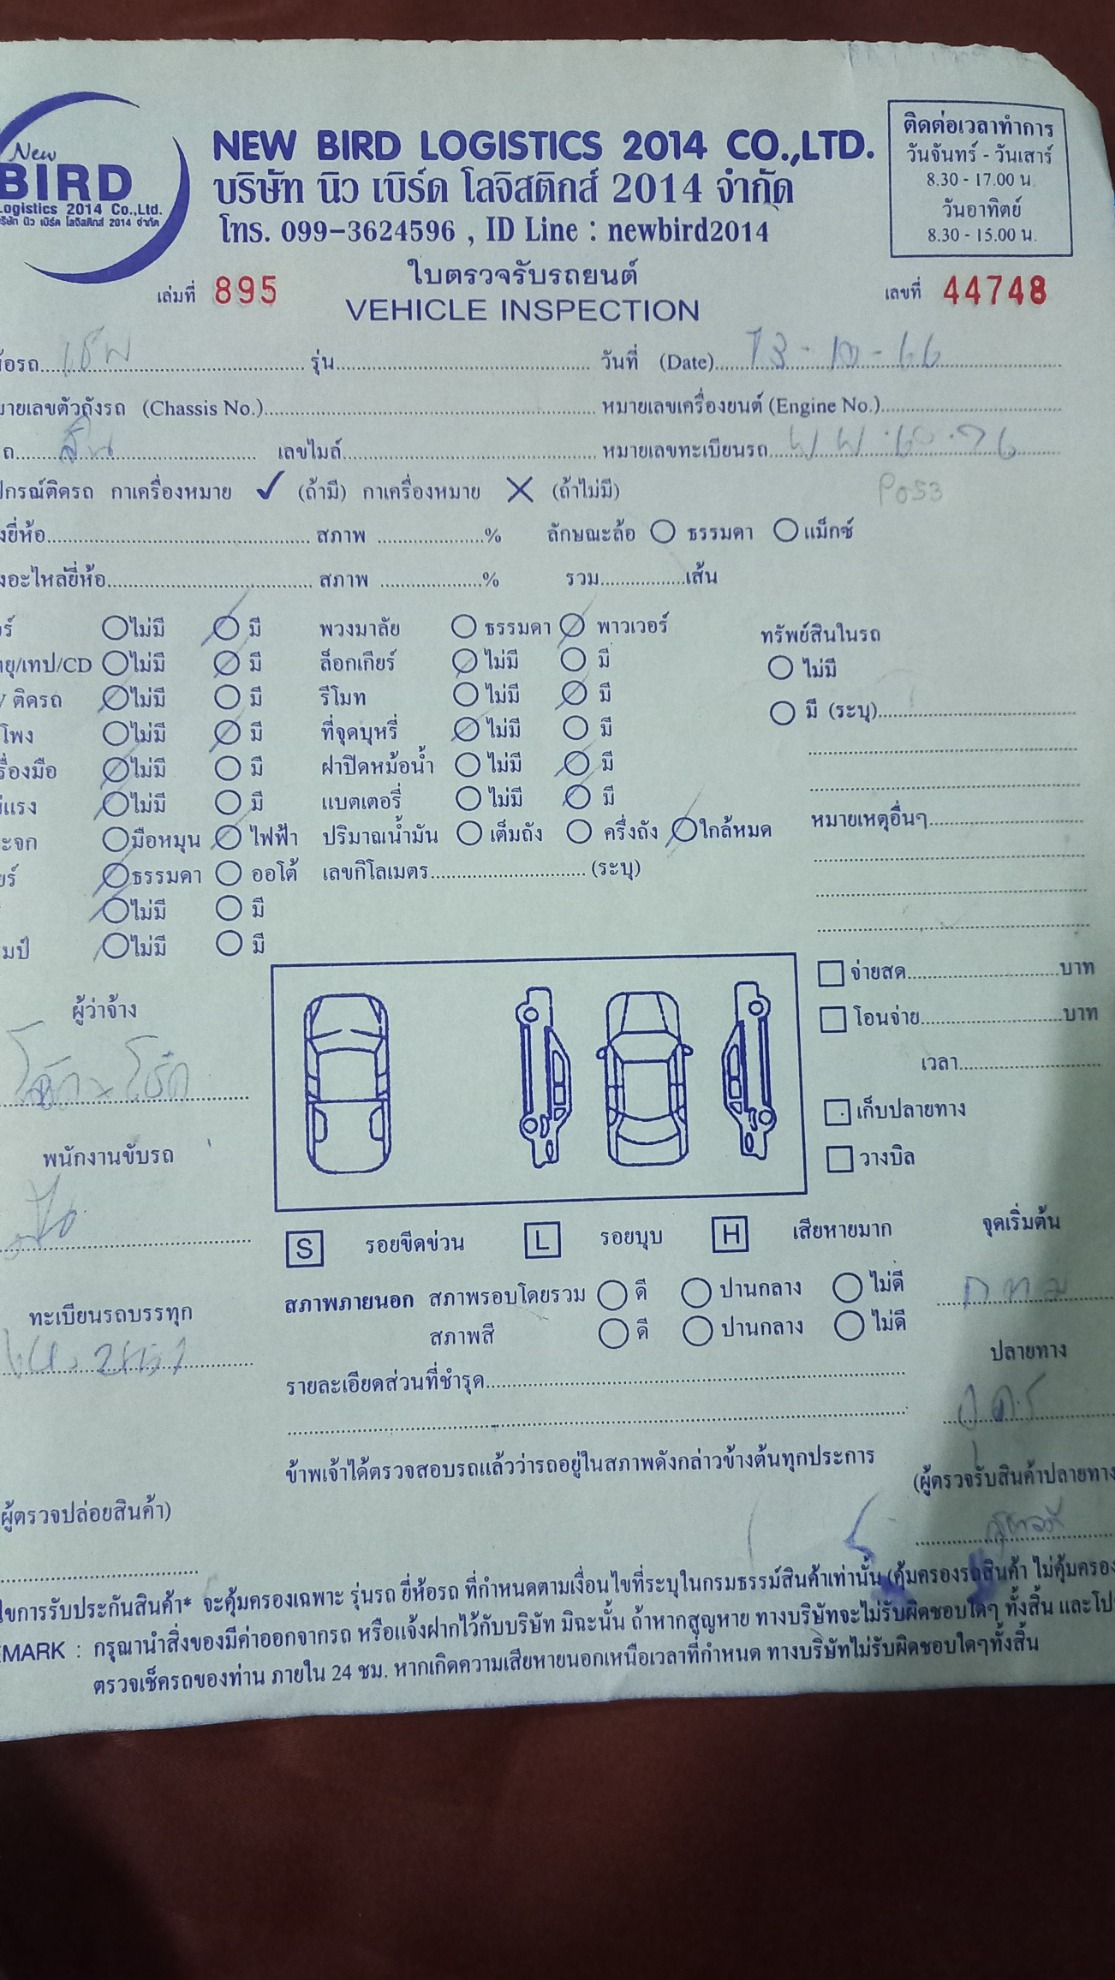 New
BIRD
Logistics 2014 Co.,Ltd.
บริษัท นิว เบิร์ด โลจิสติกส์ 2014 จำกัด
NEW BIRD LOGISTICS 2014 CO.,LTD.
บริษัท นิว เบิร์ด โลจิสติกส์ 2014 จำกัด
โทร. 099-3624596 , ID Line : newbird2014
ติดต่อเวลาทำการ
วันจันทร์ - วันเสาร์
8.30 - 17.00 น.
วันอาทิตย์
8.30 - 15.00 น.
เล่มที่ 895
ใบตรวจรับรถยนต์
VEHICLE INSPECTION
เลขที่ 44748
รุ่น วันที่ (Date) 13-10-66
(Chassis No.) หมายเลขเครื่องยนต์ (Engine No.)
เลขไมล์ หมายเลขทะเบียนรถ
กาเครื่องหมาย ✓ (ถ้ามี) กาเครื่องหมาย ✗ (ถ้าไม่มี)
P0S3
สภาพ % ลักษณะล้อ ธรรมดา แม็กซ์
สภาพ % รวม เส้น
ไม่มี มี พวงมาลัย ธรรมดา พาวเวอร์
/เทป/CD ไม่มี มี ล็อกเกียร์ ไม่มี มี
ติดรถ ไม่มี มี รีโมท ไม่มี มี
ไม่มี มี ที่จุดบุหรี่ ไม่มี มี
ไม่มี มี ฝาปิดหม้อน้ำ ไม่มี มี
ไม่มี มี แบตเตอรี่ ไม่มี มี
มือหมุน ไฟฟ้า ปริมาณน้ำมัน เต็มถัง ครึ่งถัง ใกล้หมด
ธรรมดา ออโต้ เลขกิโลเมตร (ระบุ)
ไม่มี มี
ไม่มี มี
ทรัพย์สินในรถ
ไม่มี
มี (ระบุ)
หมายเหตุอื่นๆ
จ่ายสด บาท
โอนจ่าย บาท
เวลา
เก็บปลายทาง
วางบิล
ผู้ว่าจ้าง
พนักงานขับรถ
ทะเบียนรถบรรทุก
S รอยขีดข่วน L รอยบุบ H เสียหายมาก
จุดเริ่มต้น
กทม
สภาพภายนอก สภาพรอบโดยรวม ดี ปานกลาง ไม่ดี
สภาพสี ดี ปานกลาง ไม่ดี
ปลายทาง
รายละเอียดส่วนที่ชำรุด
ข้าพเจ้าได้ตรวจสอบรถแล้วว่ารถอยู่ในสภาพดังกล่าวข้างต้นทุกประการ
(ผู้ตรวจรับสินค้าปลายทาง
ผู้ตรวจปล่อยสินค้า)
ไขการรับประกันสินค้า* จะคุ้มครองเฉพาะ รุ่นรถ ยี่ห้อรถ ที่กำหนดตามเงื่อนไขที่ระบุในกรมธรรม์สินค้าเท่านั้น (คุ้มครองรถสินค้า ไม่คุ้มครอง
EMARK : กรุณานำสิ่งของมีค่าออกจากรถ หรือแจ้งฝากไว้กับบริษัท มิฉะนั้น ถ้าหากสูญหาย ทางบริษัทจะไม่รับผิดชอบใดๆ ทั้งสิ้น และโป
ตรวจเช็ครถของท่าน ภายใน 24 ชม. หากเกิดความเสียหายนอกเหนือเวลาที่กำหนด ทางบริษัทไม่รับผิดชอบใดๆทั้งสิ้น